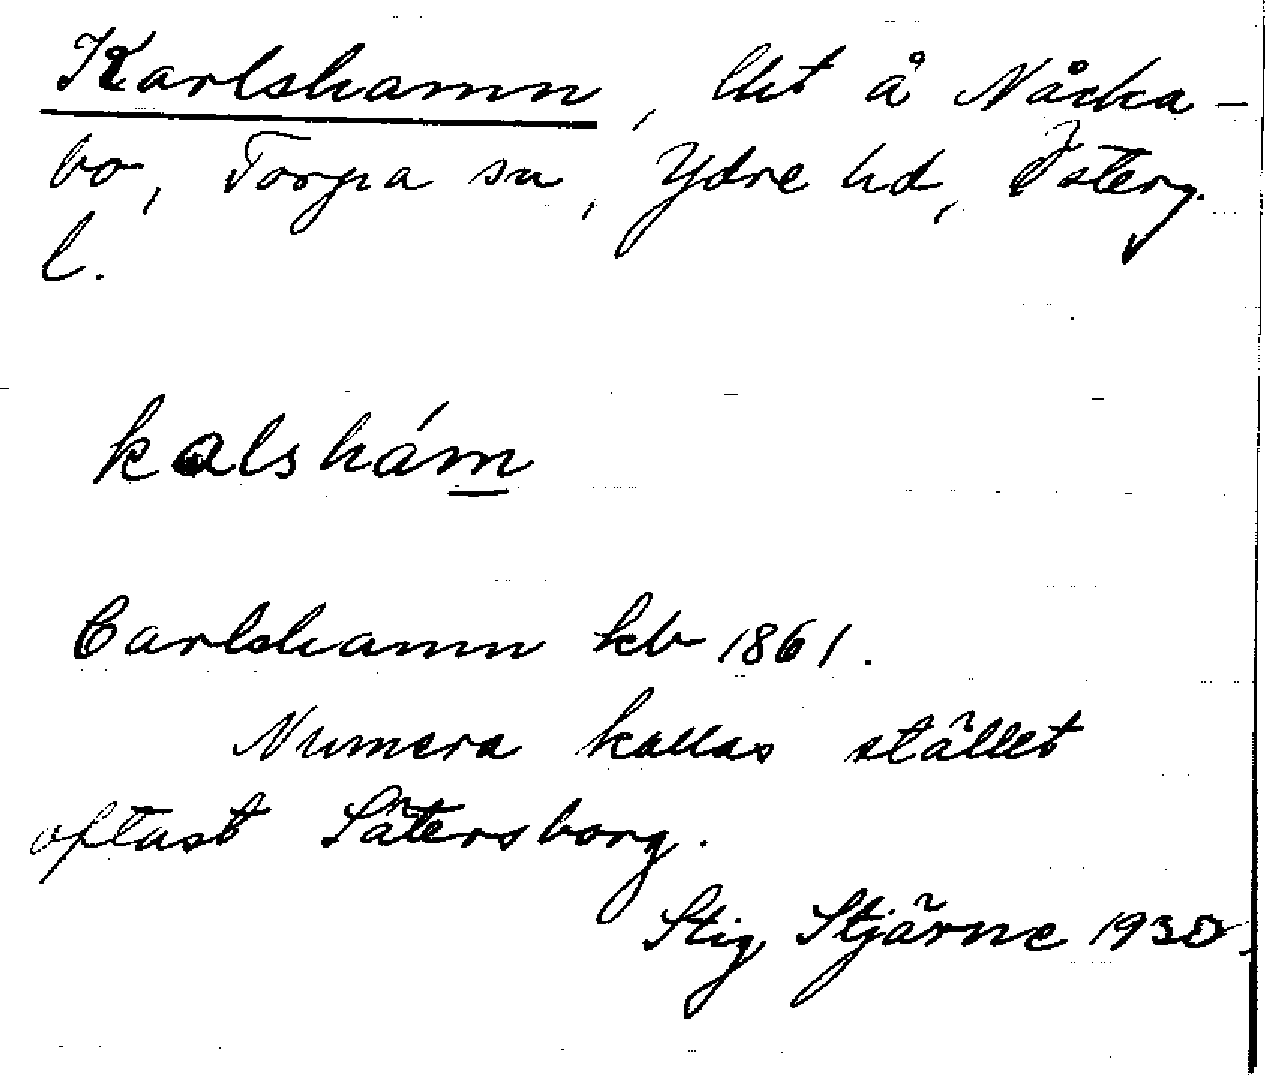 Karlshamn, lht å Nåcka-
bo, Torpa sn, Ydre hd, Österg.
l.
kalshám
Carlshamn kb 1861.
Numera kallas stället
oftast Sätersborg.
Stig Stjärne 1930.